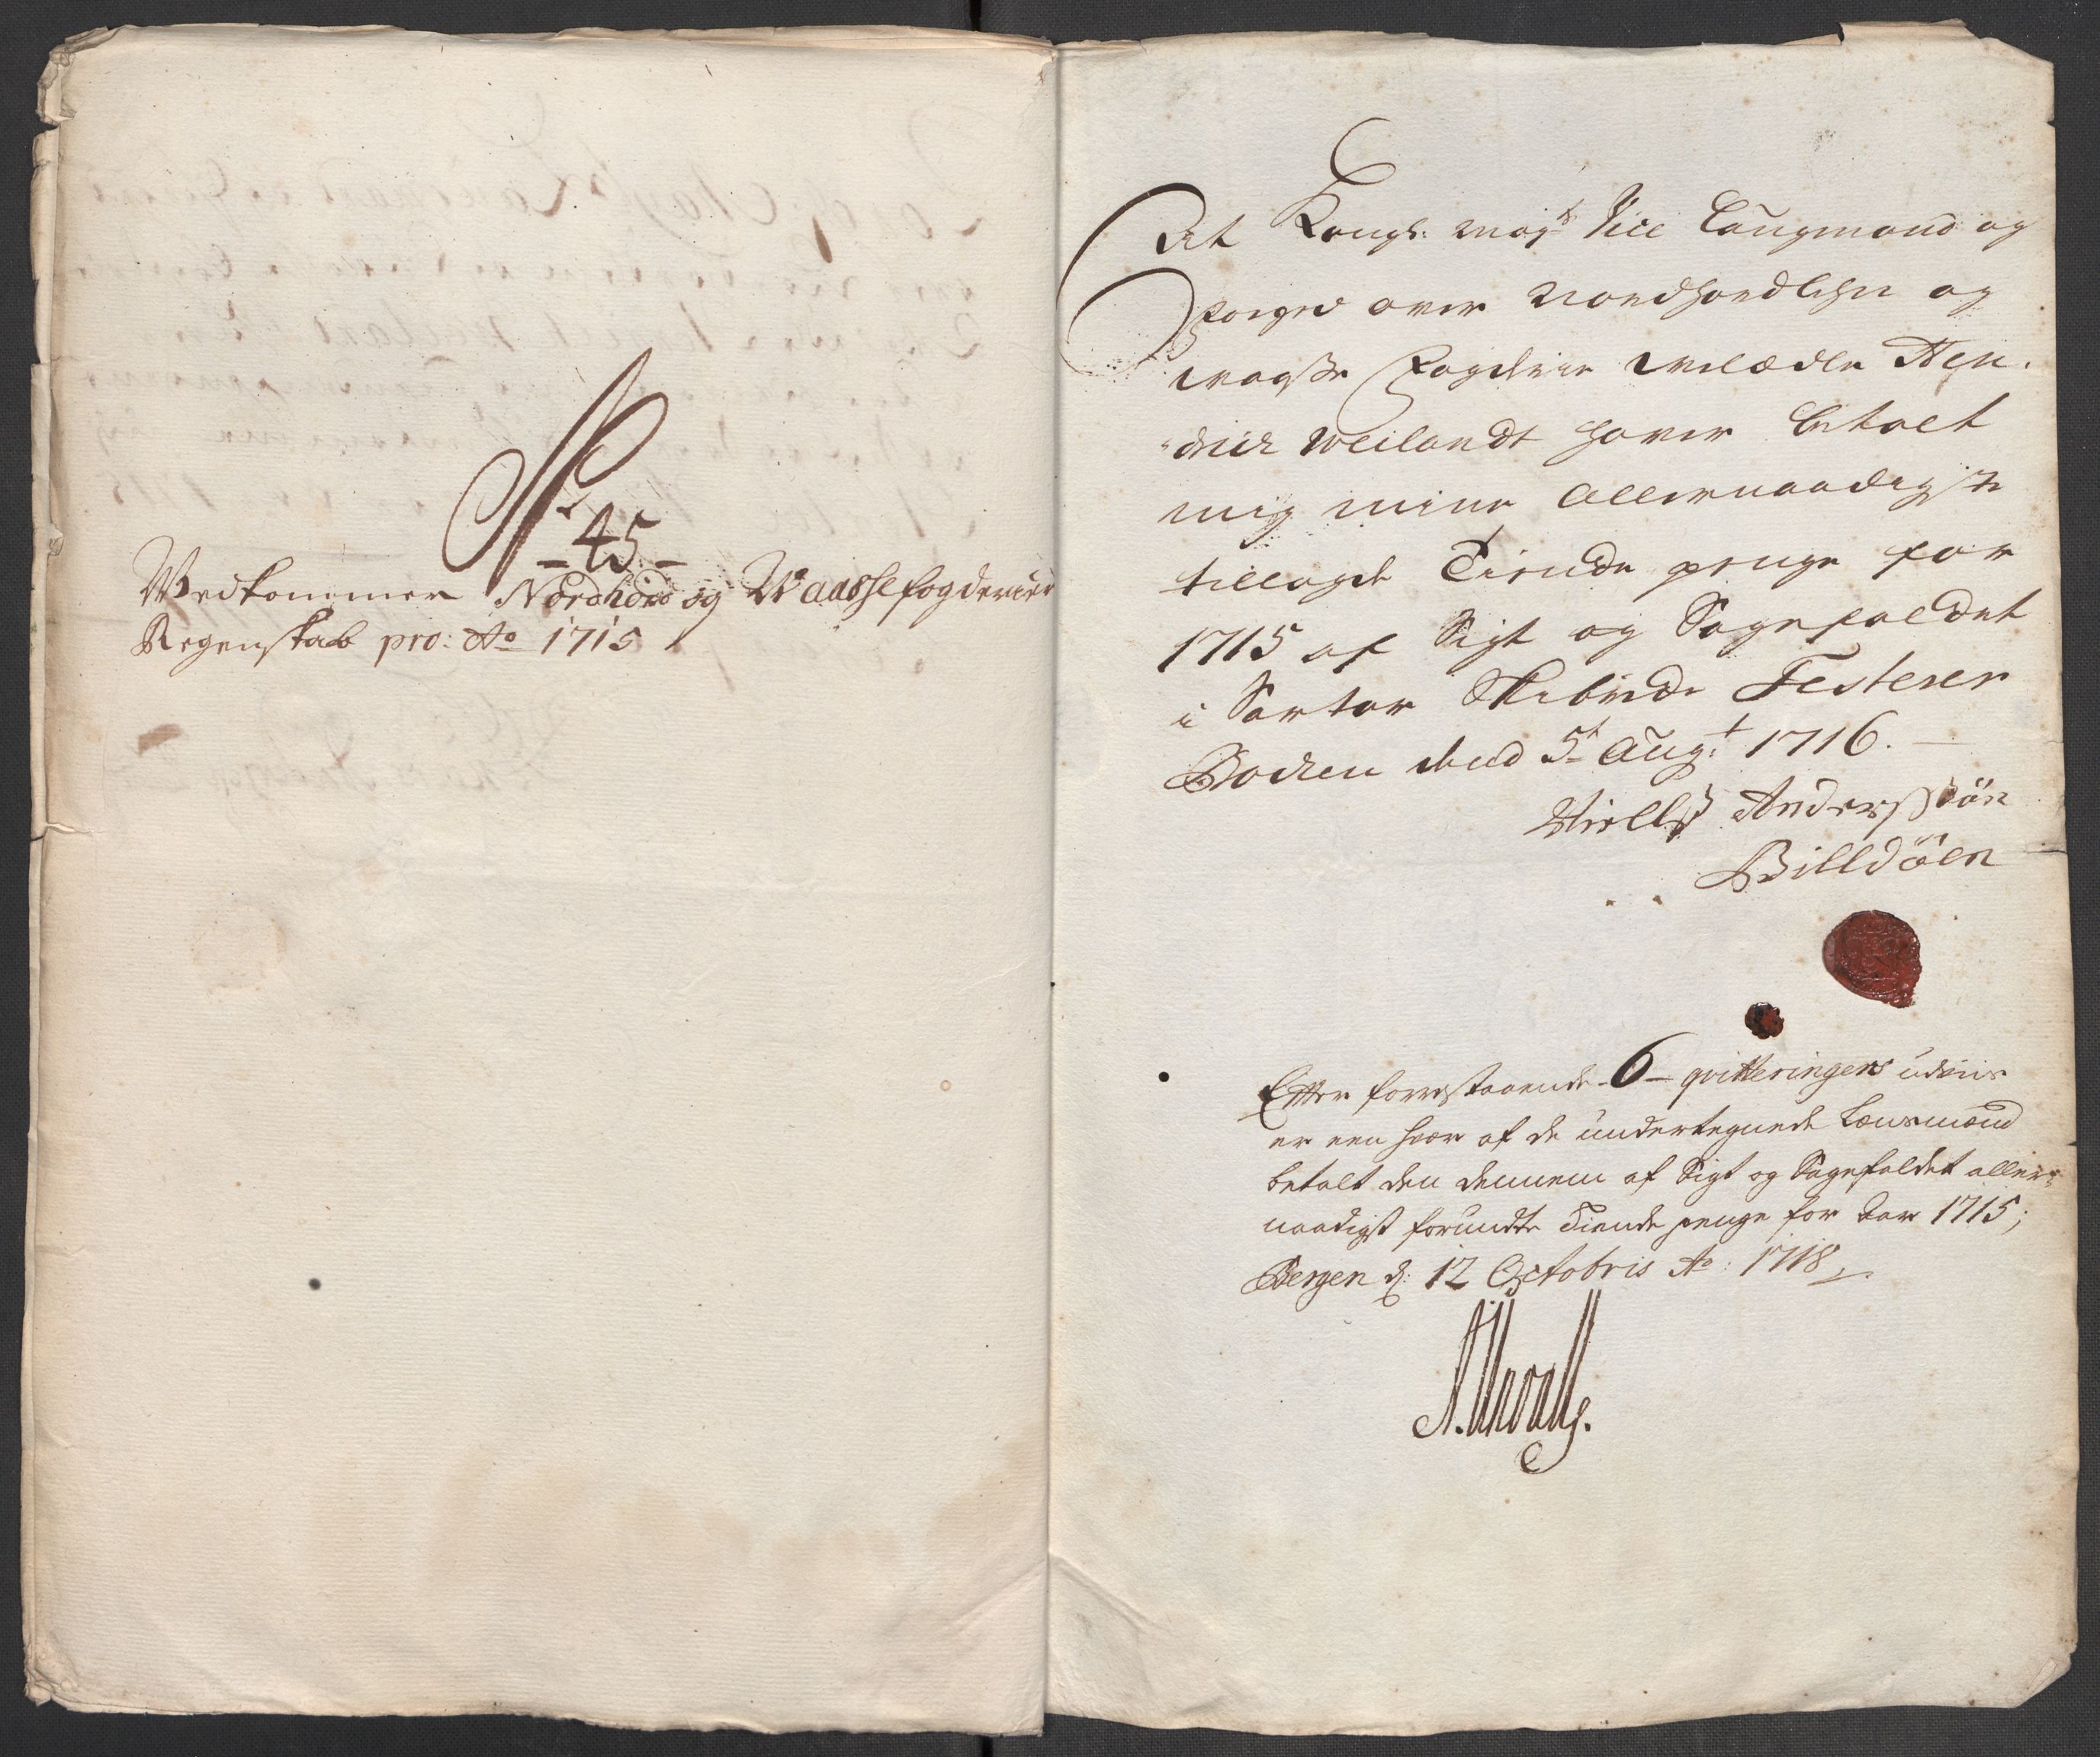 No
- 45 -
Vedkommer Nordhord og Waasse fogderier
Regenskab pro: Ao 1715
At Kongl: Mayts Vice Laugmand og
Foiged over Nordhordlehn og
Wogsse Fogderie Welædle Hen-
-drich Weilandt hafver betalt
mig mine Allernaadigste
tillagde Tiende penge for
1715 af Sigt og Sagefaldet
i Sartor Skibrede Testerer
Backen dend 5t Augt: 1716.
Niells Anderssøn
Billdøen
Efter forrestaaende - 6 - qvitteringers udviis
er een hver af de undertegnede Lensmænd
betalt den dennem af Sigt og Sagefaldet aller-
naadigst forundte Tiende penge for Aar 1715;
Bergen d: 12 Octobris Ao: 1718